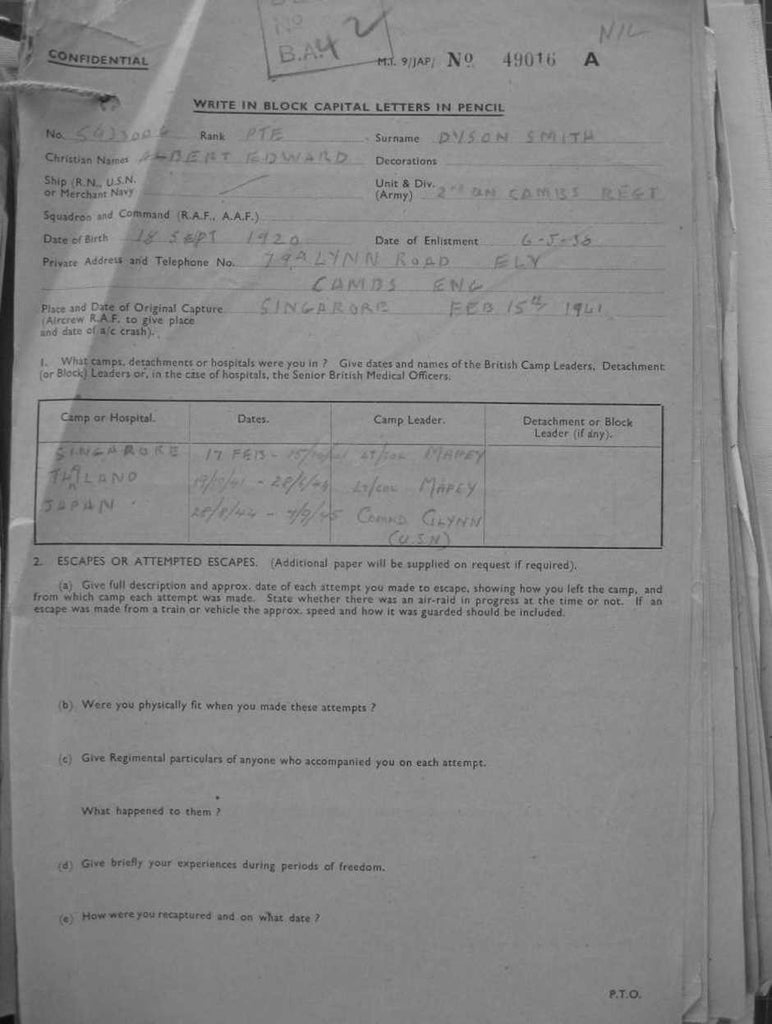 NIL
No
B.A. 42
CONFIDENTIAL
M.I. 9/JAP/ No 49016 A
WRITE IN BLOCK CAPITAL LETTERS IN PENCIL
No. Rank PTE Surname DYSON SMITH
Christian Names ALBERT EDWARD Decorations
Ship (R.N., U.S.N. or Merchant Navy Unit & Div. (Army) 2nd BN CAMBS REGT
Squadron and Command (R.A.F., A.A.F.)
Date of Birth 18 SEPT 1920 Date of Enlistment 6-5-38
Private Address and Telephone No. 79A LYNN ROAD ELY
CAMBS ENG
Place and Date of Original Capture SINGARORE FEB 15th 1941
(Aircrew R.A.F. to give place
and date of a/c crash).
1. What camps, detachments or hospitals were you in ? Give dates and names of the British Camp Leaders, Detachment
(or Block) Leaders or, in the case of hospitals, the Senior British Medical Officers.
Camp or Hospital. Dates. Camp Leader. Detachment or Block
Leader (if any).
SINGARORE 17 FEB - LT/COL MAPEY
THILAND - 28/6/44 LT/COL MAPEY
JAPAN 28/8/44 - COMMD GLYNN
(U.S.N)
2. ESCAPES OR ATTEMPTED ESCAPES. (Additional paper will be supplied on request if required).
(a) Give full description and approx. date of each attempt you made to escape, showing how you left the camp, and
from which camp each attempt was made. State whether there was an air-raid in progress at the time or not. If an
escape was made from a train or vehicle the approx. speed and how it was guarded should be included.
(b) Were you physically fit when you made these attempts ?
(c) Give Regimental particulars of anyone who accompanied you on each attempt.
What happened to them ?
(d) Give briefly your experiences during periods of freedom.
(e) How were you recaptured and on what date ?
P.T.O.